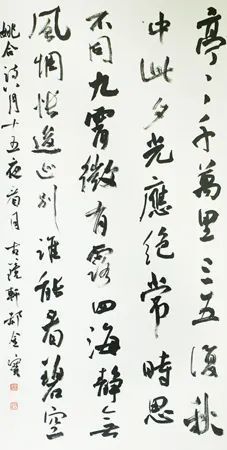 亭〻千萬里三五復秋
中此夕光應絕常時思
不同九霄微有露四海靜無
風惆悵逡巡別誰能看碧空
姚合詩八月十五夜看月古軒金寶